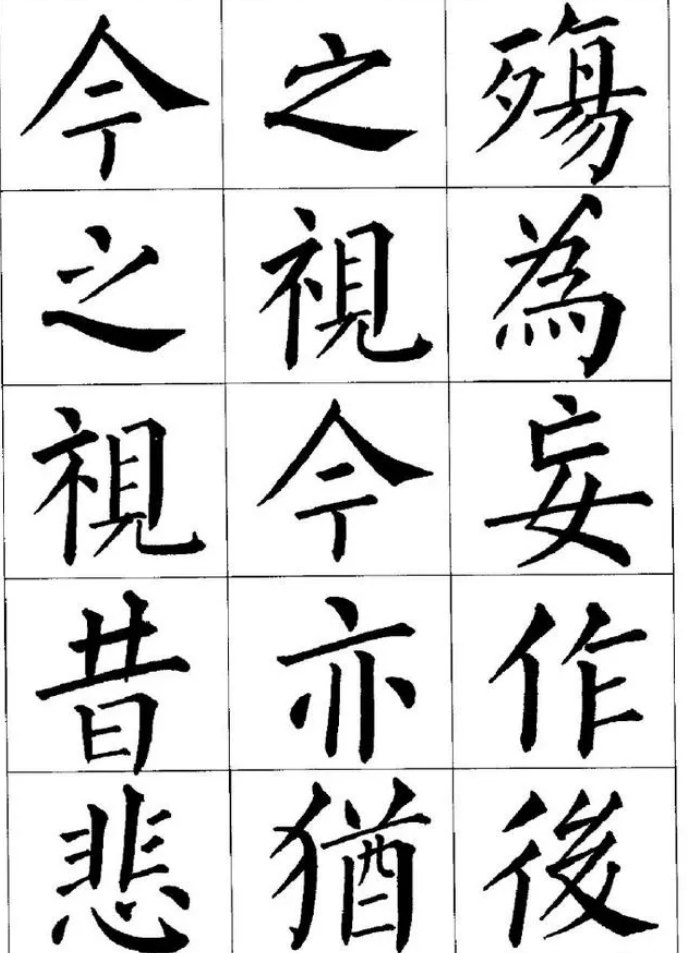 殤為妄作後
之視今亦猶
今之視昔悲